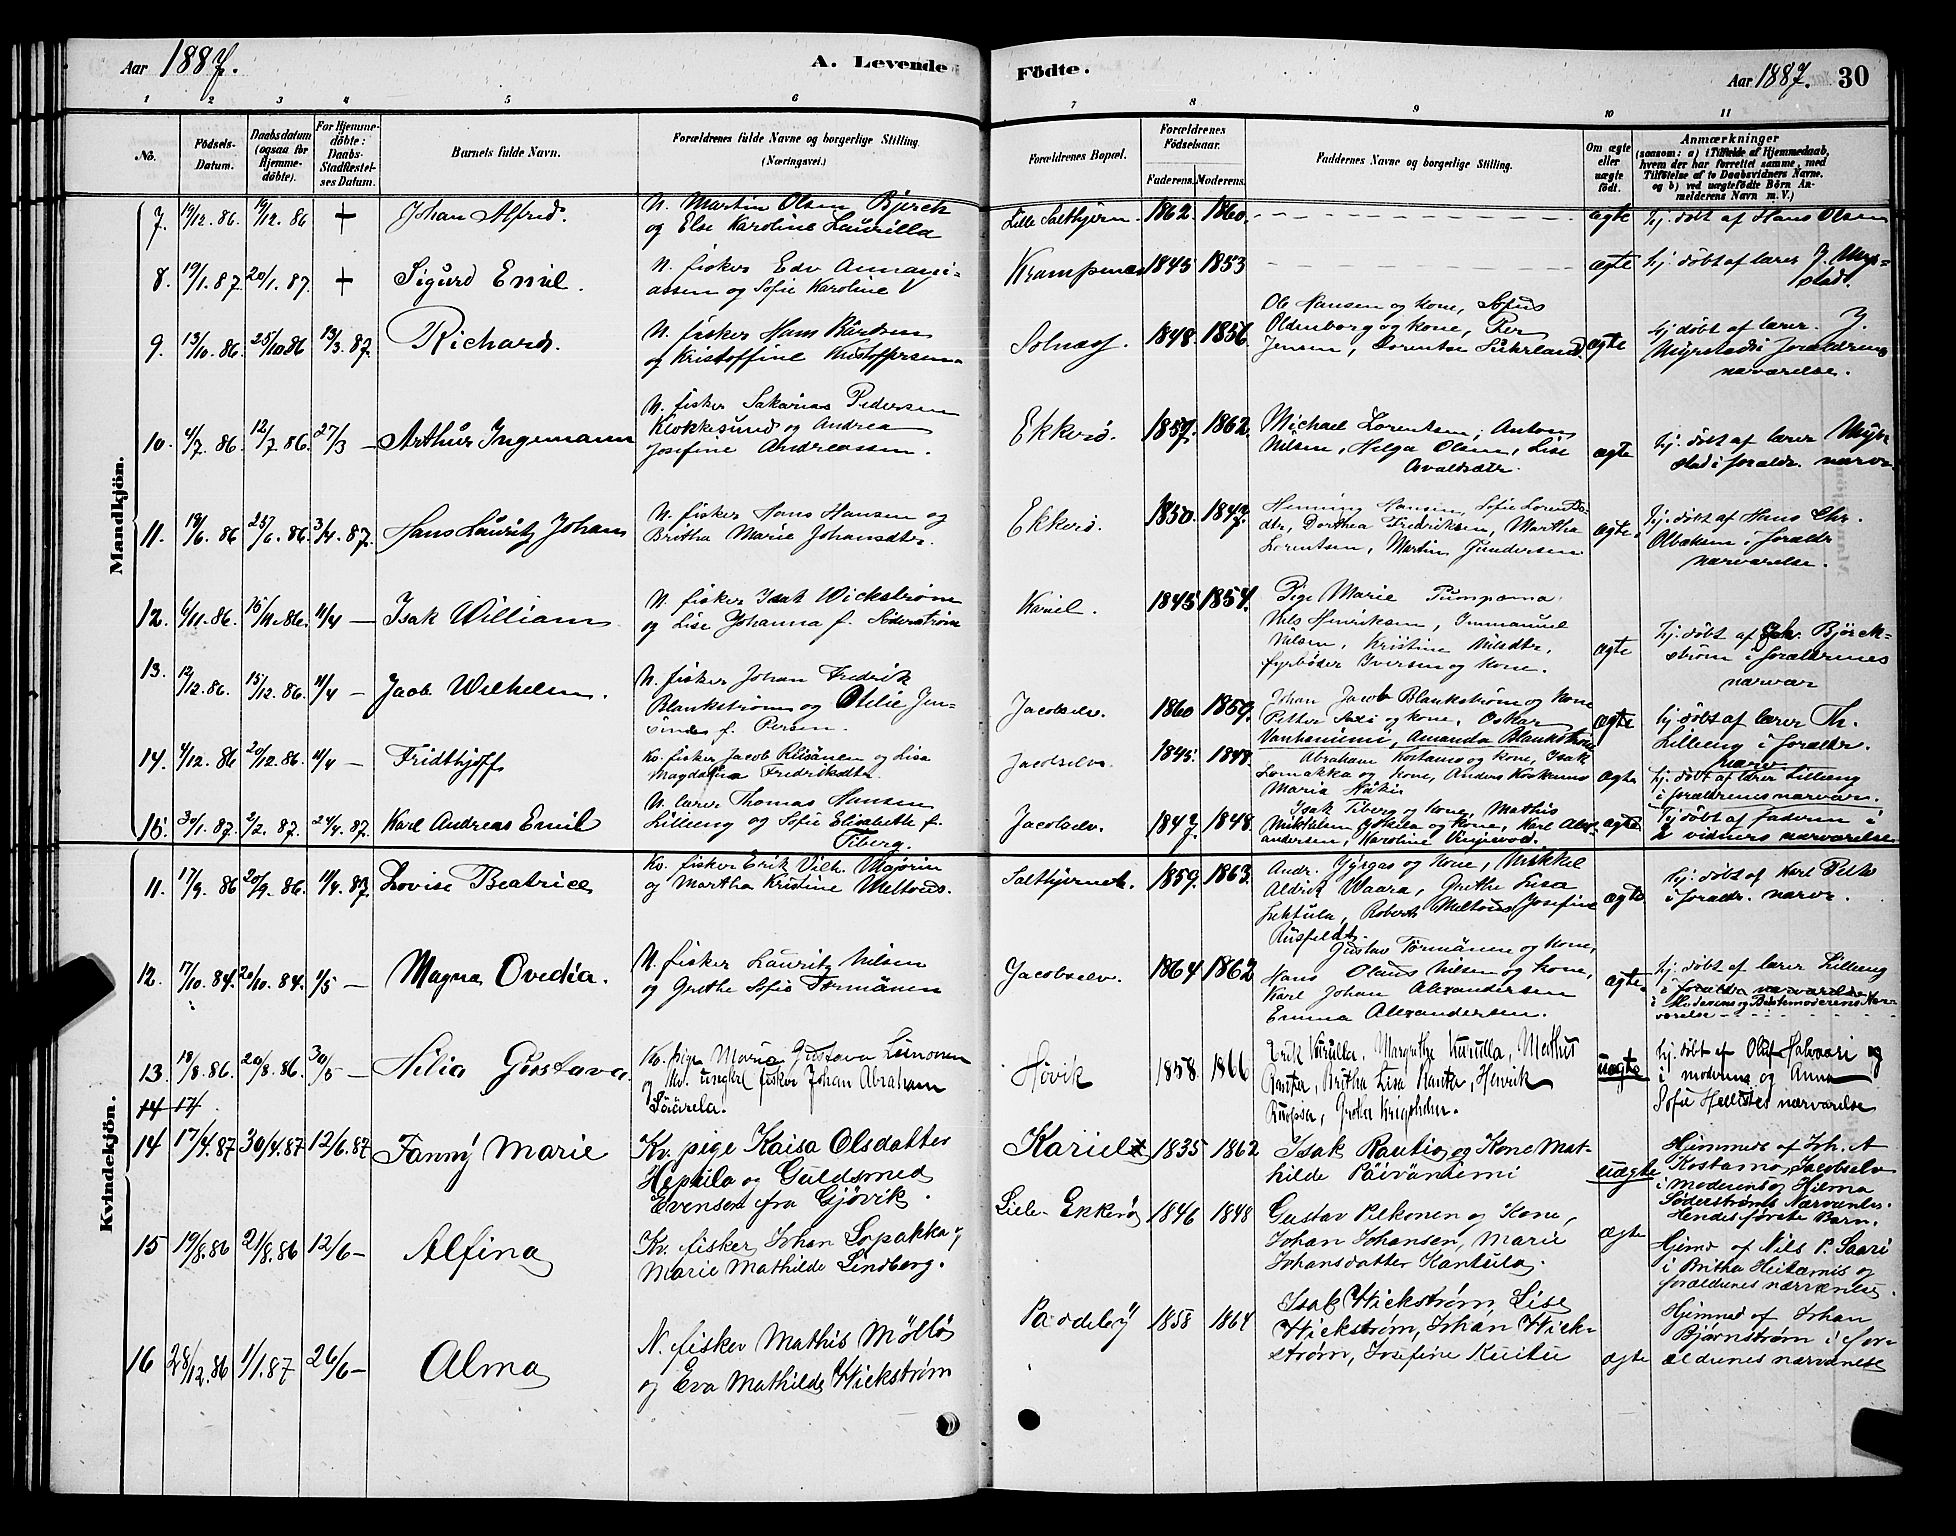 Aar 1887. A. Levende Födte. Aar 1887. 30
1 2 3 4 5 6 7 8 9 10 11
No. Födsels-Datum. Daabsdatum (ogsaa for Hjemme-döbte). For Hjemme-döbte: Daabs-Stadfæstel-ses Datum. Barnets fulde Navn. Forældrenes fulde Navne og borgerlige Stilling. (Næringsvei.) Forældrenes Bopæl. Forældrenes Födselsaar. Faderens. Moderens. Faddernes Navne og borgerlige Stilling. Om ægte eller uægte födt. Anmærkninger
(saasom: a) i Tilfælde af Hjemmedaab,
hvem der har forrettet samme, med
Tilföielse af to Daabsvidners Navne.
og b) ved uægtefödte Börn An-
melderens Navn m. V.)
Mandkjön.
7. 19/12.86. 19/12.86 + Johan Alfred. N. Martin Olsen Bjerck
og Else Karoline Laurilla
Lille Saltbjern. 1862. 1860. ægte hj. döbt af Hans Olsen
8. 19/1.87. 20/1.87. + Sigurd Emil. N. fisker Edv. Annani-
assen og Sofie Karoline
Krampenæs 1845 1853 ægte hj. döbt af lærer J. Myr-
stad.
9. 13/10.86. 25/10 86 13/3.87. Richard. N. fisker Hans Bårdsen
og Kristoffine Kristoffersen
1848. 1856. Ole Hansen og kone, Sofus
Oldenborg og kone, Per
Jensen, Dorentse
ægte hj. döbt af lærer J.
Myrstad i forældrenes
nærværelse.
10. 4/7.86. 12/7.86. 27/3 — Arthur Ingemann N. fisker Sakarias Pedersen
Klokkesund og Andrea
Josefine Andreassen.
Ekkerö. 1859. 1862. Michael Lorentsen, Anton
Nilsen, Helga Olsen, Lise
ægte hj. döbt af lærer Myr-
stad i forældr. nærvr.
11. 19/6.86 25/6.86. 3/4.87. Hans Lauritz Johan N. fisker Hans Hansen og
Britha Marie Johansdtr.
Ekkerö. 1850. 1847. Henning Hansen, Sofie Lorents-
dtr, Dorthea Fredriksen, Martha
Lorentsen, Martin Gundersen
ægte. hj. döbt af Hans Chr.
i forældr
nærværelse.
12. 6/11.86. 15/11.86. 11/4 — Isak William N. fisker Isak Wickström
og Lise Johanna f. Söderström
Kariel. 1845 1854. Pige Marie
Nils Henriksen, Immanuel
Nilsen, Kristine Nilsdtr,
fyrböder Iversen og kone.
ægte hj. döbt af Joh. Björck-
ström i forældrenes
nærvær
13. 12/12.86. 15/12.86. 11/4 — Jacob Wilhelm. N. fisker Johan Fredrik
Blankström og Otilie Jen-
sine f. Persen.
Jacobselv. 1860 1859. Johan Jacob Blankström og kone
Petter og kone, Oskar
Vanhaniemi, Amanda Blankström
ægte hj. döbt af lærer Th.
Lilleeng i forældr.
nærv.
14. 4/12.86 20/12.86. 11/4 — Fridthjoff Kv. fisker Jacob og Lisa
Magdalena Fredriksdtr.
Jacobselv. 1845. 1848. Abraham Kostamo og kone, Isak
Lomakka og kone, Anders Koskamo
Maria
ægte hj. döbt af lærer Lilleeng
i forældrenes nærværr.
15. 30/1.87. 2/2.87. 24/4.87. Karl Andreas Emil N. lærer Thomas Hansen
Lilleeng og Sofie Elisabeth f.
Tiberg.
Jacobselv. 1847. 1848. Isak Tiberg og kone, Mathis
og kone, Karl Alex-
andersen, Karoline
ægte hj. döbt af faderen i
2 vidners nærværelse
Kvindekjön.
11. 17/9.86 20/9.86. 11/4.87. Lovise Beatrice Kv. fisker Erik Vilh. Majorin
og Martha Kristine
1859. 1863. Andr. og kone, Mikkel
Aldrik Waara, Grethe Lisa
Robert Josefine
ægte hj. döbt af Karl
i forældr. nærvr.
12. 17/10.84. 20/10.84. 1/5 — Magna Ovedia. N. fisker Lauritz Nilsen
og Grethe Sofie Tormänen
Jacobselv. 1864 1862 Gustav Tormänen og kone,
Hans Olaus Nilsen og kone,
Karl Johan Alexandersen
Emma Alexandersen.
ægte. hj. döbt af lærer Lilleeng
i forældr nærværelse
i Moderens og Bestemoderens Nær-
værelse
13 18/8.86. 20/8.86. 30/5 — Hilia Gustava Kv. pige Maria Gustava Lunonen
og Nv. ungkl fisker Johan Abraham
Höivik 1858 1866 Erik Kurulla, Margrethe Kurulla, Mathis
Rautia, Britha Lisa Rautia, Henrik
Grethe
uægte hj. döbt af Oluf og
i moderens og Anna
Sofie nærværelse
14 17
14 17/4.87 30/4.87 12/6.87 Fanny Marie Kv. pige Kaisa Olsdatter
Heptila og Guldsmed
Evensen fra Gjövik.
Kariel 1835 1862 Isak Rautio og Kone Mat-
hilde Päivänriemi
uægte Hjemmed af Joh. A
Kostamo, Jacobselv
i Moderens og Hilma
Söderströms Nærværelse.
Hendes förste Barn.
15 19/8.86 21/8.86 12/6 — Alfina Kv. fisker Johan Lopakka og
Marie Mathilde Lindberg.
Lille Ekkerö 1846 1848 Gustav Pelkonen og Kone,
Johan Johansen, Marie
Johansdatter Kantula.
ægte Hjemd af Nils P. Saari
i Britha og
forældrenes nærværelse.
16 28/12.86 1/1.87 26/6 — Alma N. fisker Mathis
og Eva Mathilde Wickström
Paddeby 1858 1864 Isak Wickström, Lise
Wickström, Johan Wick-
ström, Josefine Kuitu
ægte Hjemmed af Johan
Bjørnström i for-
ældrenes nærværelse